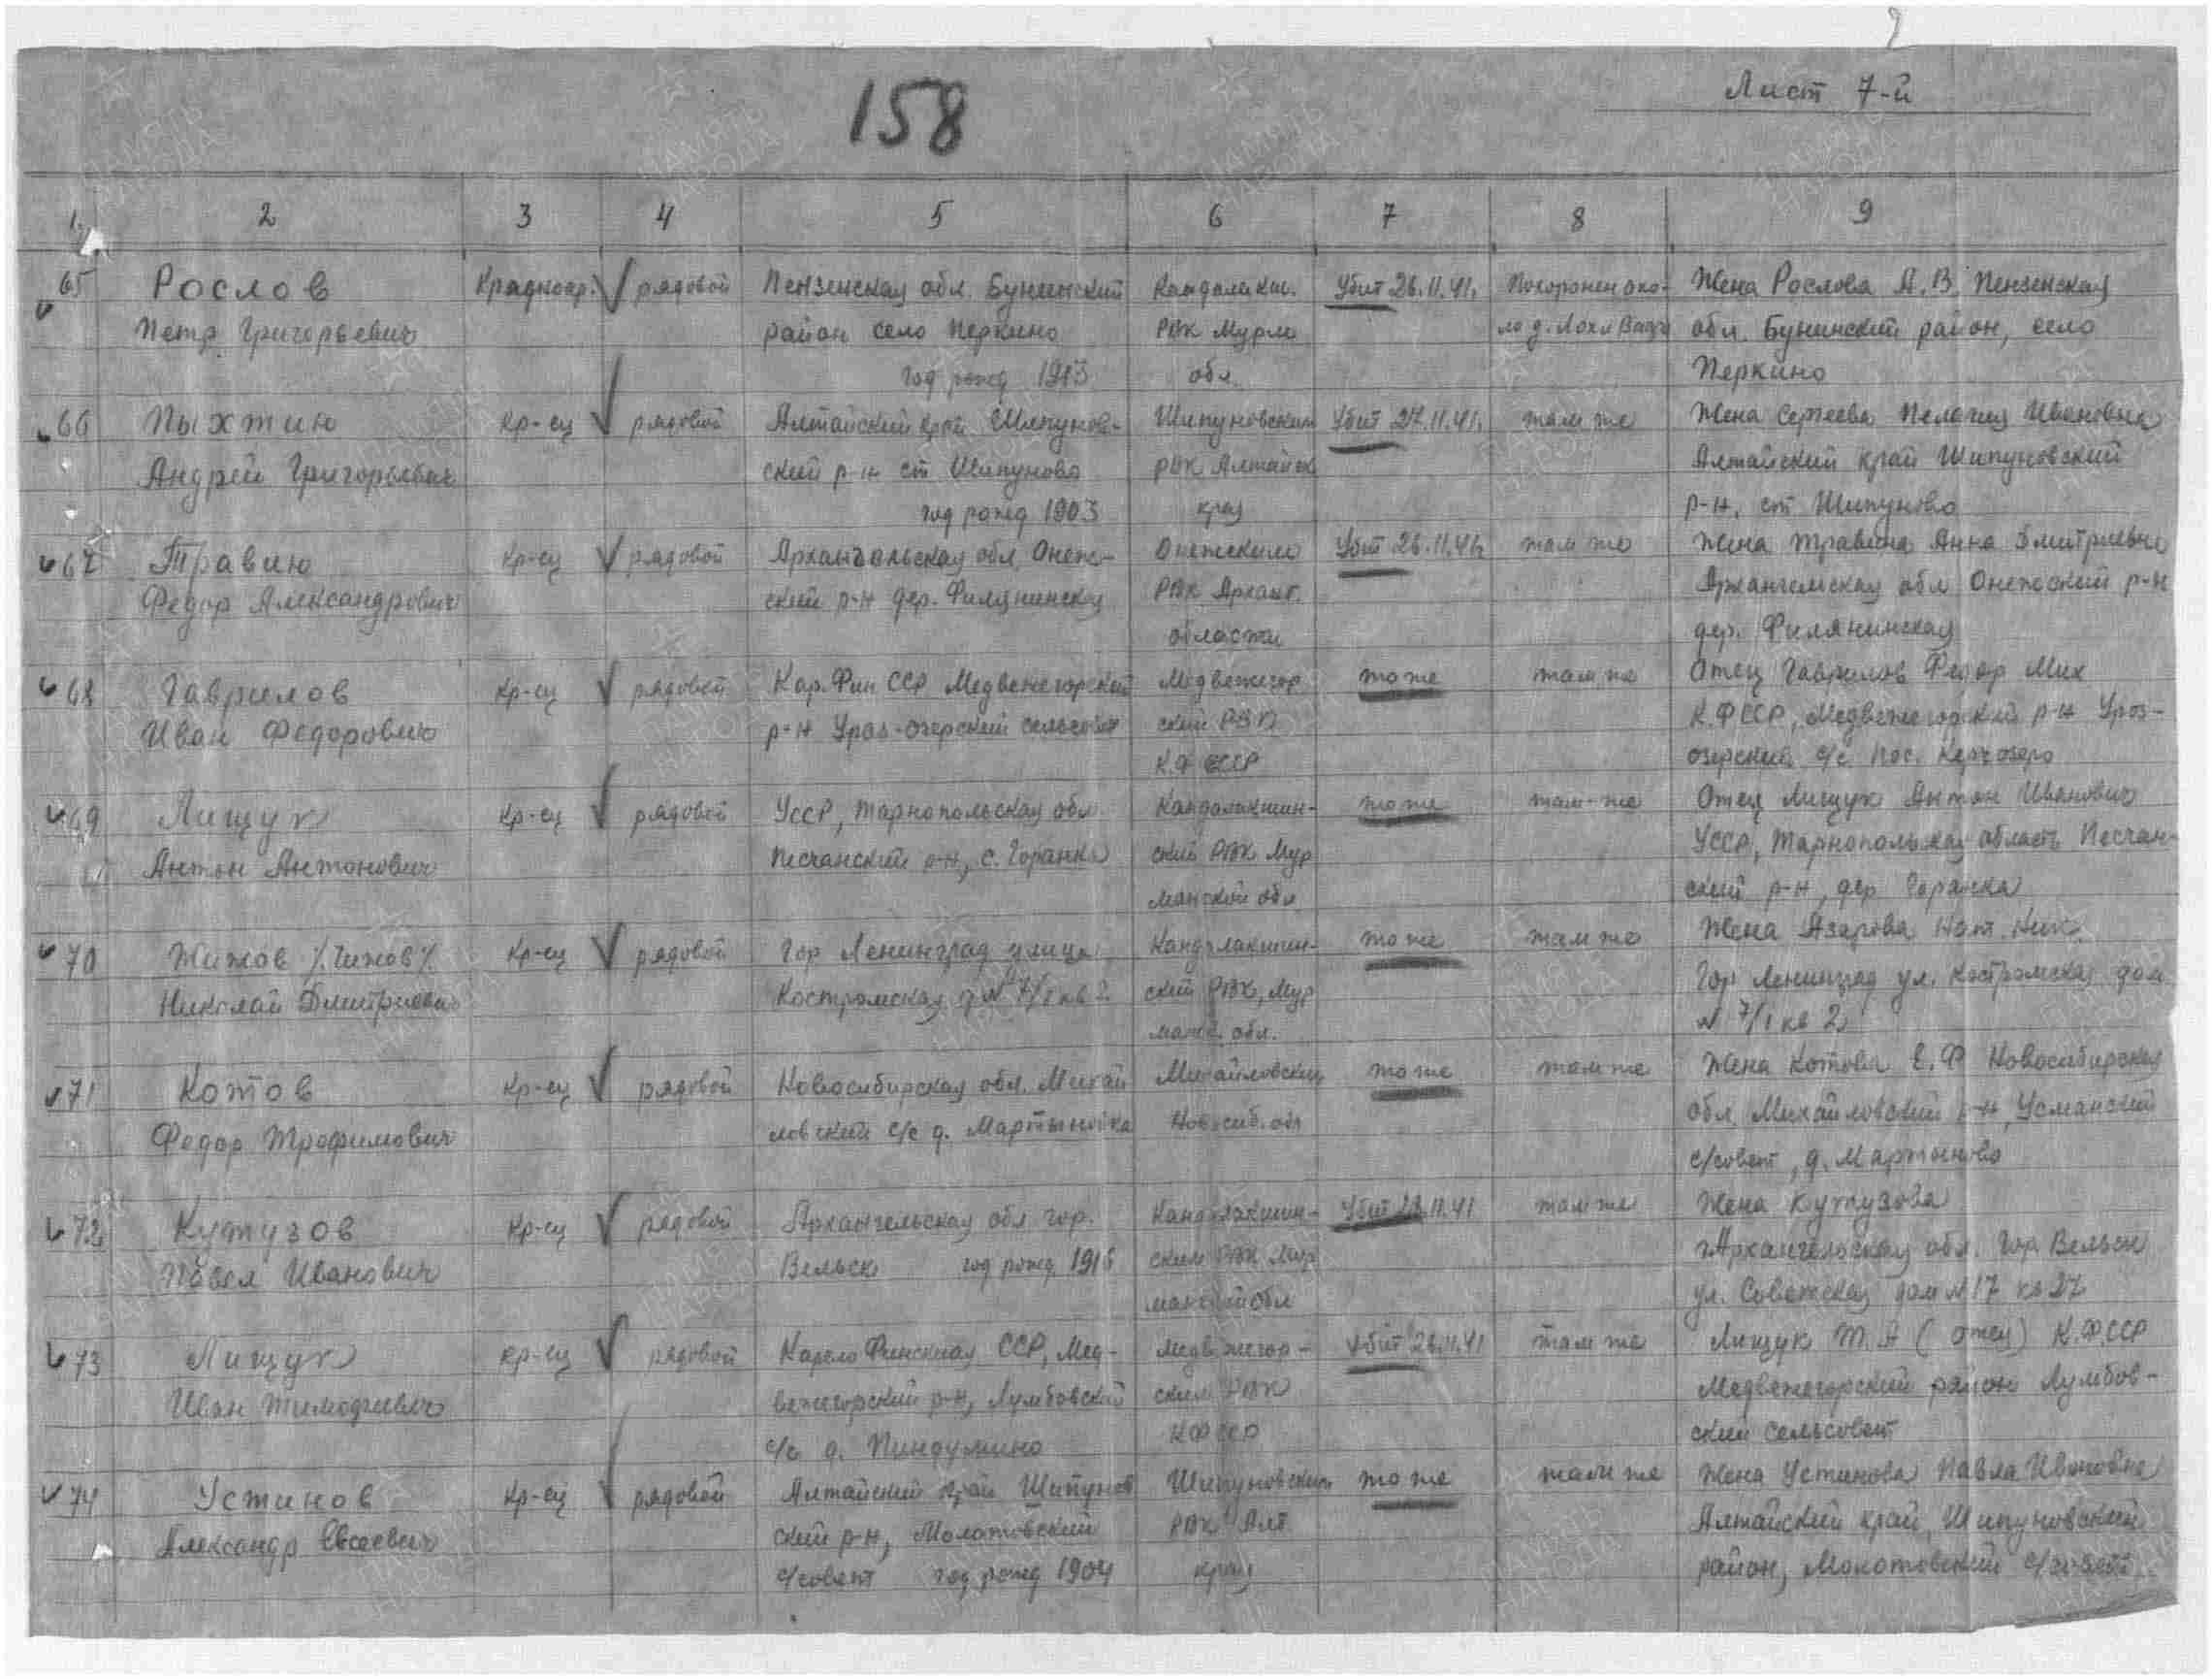 158
Лист 7-й
1 2 3 4 5 6 7 8 9
65 Рослов Красноар. рядовой Пензенская обл. Бунинский Кандалакш. Убит 26.11.41. Похоронен око- Жена Рослова А.В. Пензенская
Петр Григорьевич район село Перкино РВК Мурм ло д. Лохи Вара обл. Бунинский район, село
год рожд 1913 обл. Перкино
66 Пыхтин Кр-ец рядовой Алтайский край Шипунов- Шипуновским Убит 27.11.41. там же Жена Сергеева Пелагия Ивановна
Андрей Григорьевич ский р-н ст Шипуново РВК Алтайск Алтайский край Шипуновский
год рожд 1903 края р-н. ст Шипуново
67 Травин Кр-ец рядовой Архангельская обл. Онеж- Онежским Убит 26.11.41. там же Жена Травина Анна Дмитриевна
Федор Александрович ский р-н дер. Филянинская РВК Арханг. Архангельская обл Онежский р-н
области дер. Филянинская
68 Гаврилов Кр-ец рядовой Кар. Фин ССР Медвежегорский Медвежегор то же там же Отец Гаврилов Федор Мих
Иван Федорович р-н Уроз-озерский сельсовет ский РВК К.ФССР, Медвежегорский р-н Уроз-
К.Ф ССР озерский с/с. пос.
69 Лищук Кр-ец рядовой УССР, Тарнопольская обл Кандалакшин- то же там-же Отец Лищук Антон Иванович
Антон Антонович Песчанский р-н, с. Горанка ский РВК Мур УССР, Тарнопольская область Песчан-
манской обл ский р-н, дер Горанка
70 Жижов /.Чижов/. Кр-ец рядовой Гор Ленинград улица Кандалакшин- то же там же Жена Азарова Нат. Ник.
Николай Дмитриевич Костромская д № 7/1 кв 2 ский РВК, Мур Гор Ленинград ул. Костромская дом
манс. обл. № 7/1 кв 2
71 Котов Кр-ец рядовой Новосибирская обл. Михай Михайловским то же там же Жена Котова Е.Ф Новосибирская
Федор Трофимович ловский с/с д. Мартыновка Новосиб. обл обл. Михайловский р-н, Усманский
с/совет, д. Мартыново
72 Кутузов Кр-ец рядовой Архангельская обл гор. Кандалакшин- Убит 11.41 там же Жена Кутузова
Павел Иванович Вельск год рожд 1916 ским РВК Мур Архангельская обл. Гор Вельск
манской обл ул. Советская дом № 17 кв 27
73 Лищук Кр-ец рядовой Карело Финская ССР, Мед- Медвежегор- Убит 26.11.41 там же Лищук Т.А (отец) К.Ф.ССР
Иван Тимофеевич вежегорский р-н, Лумбовский ским РВК Медвежегорский район Лумбов-
с/с д. Пиндушино КФССР ский сельсовет
74 Устинов Кр-ец рядовой Алтайский край Шипунов Шипуновским то же там же Жена Устинова Павла Ивановна
Александр Евсеевич ский р-н, Молотовский РВК Алт Алтайский край, Шипуновский
с/совет год рожд 1904 края район, Молотовский с/совет